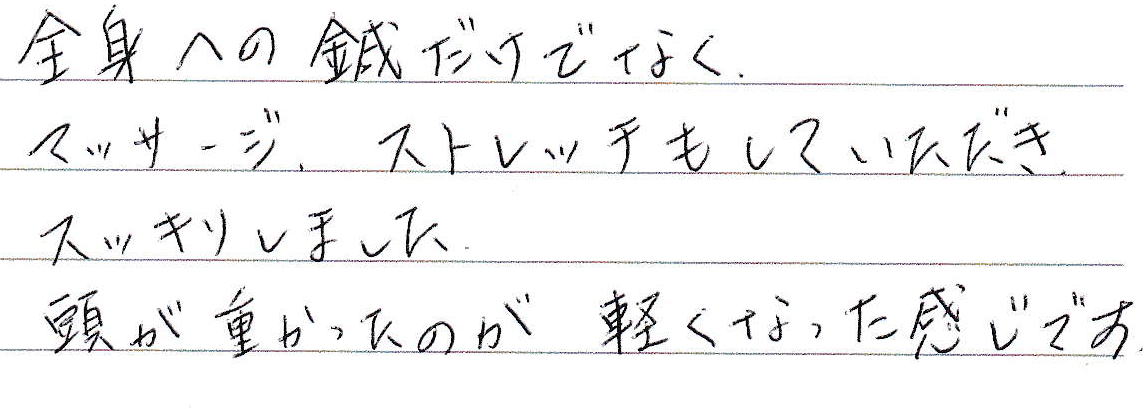 全身への鍼だけでなく、
マッサージ、ストレッチもしていただき、
スッキリしました。
頭が重かったのが軽くなった感じです。